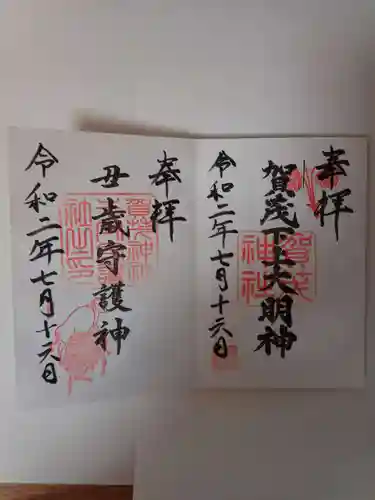 奉拝
賀茂下上大明神
令和二年七月十六日
賀茂神社
奉拝
丑歳守護神
令和二年七月十六日